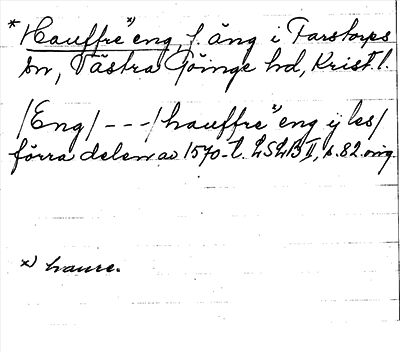 * Hauffre x) eng, f. äng i Farstorps
sn, Västra Göinge hd, Krist. l.
/Eng/ - - - /hauffre x) eng ij les/
förra delen av 1570-t. LSLB II, s. 82. orig.
x) haure.